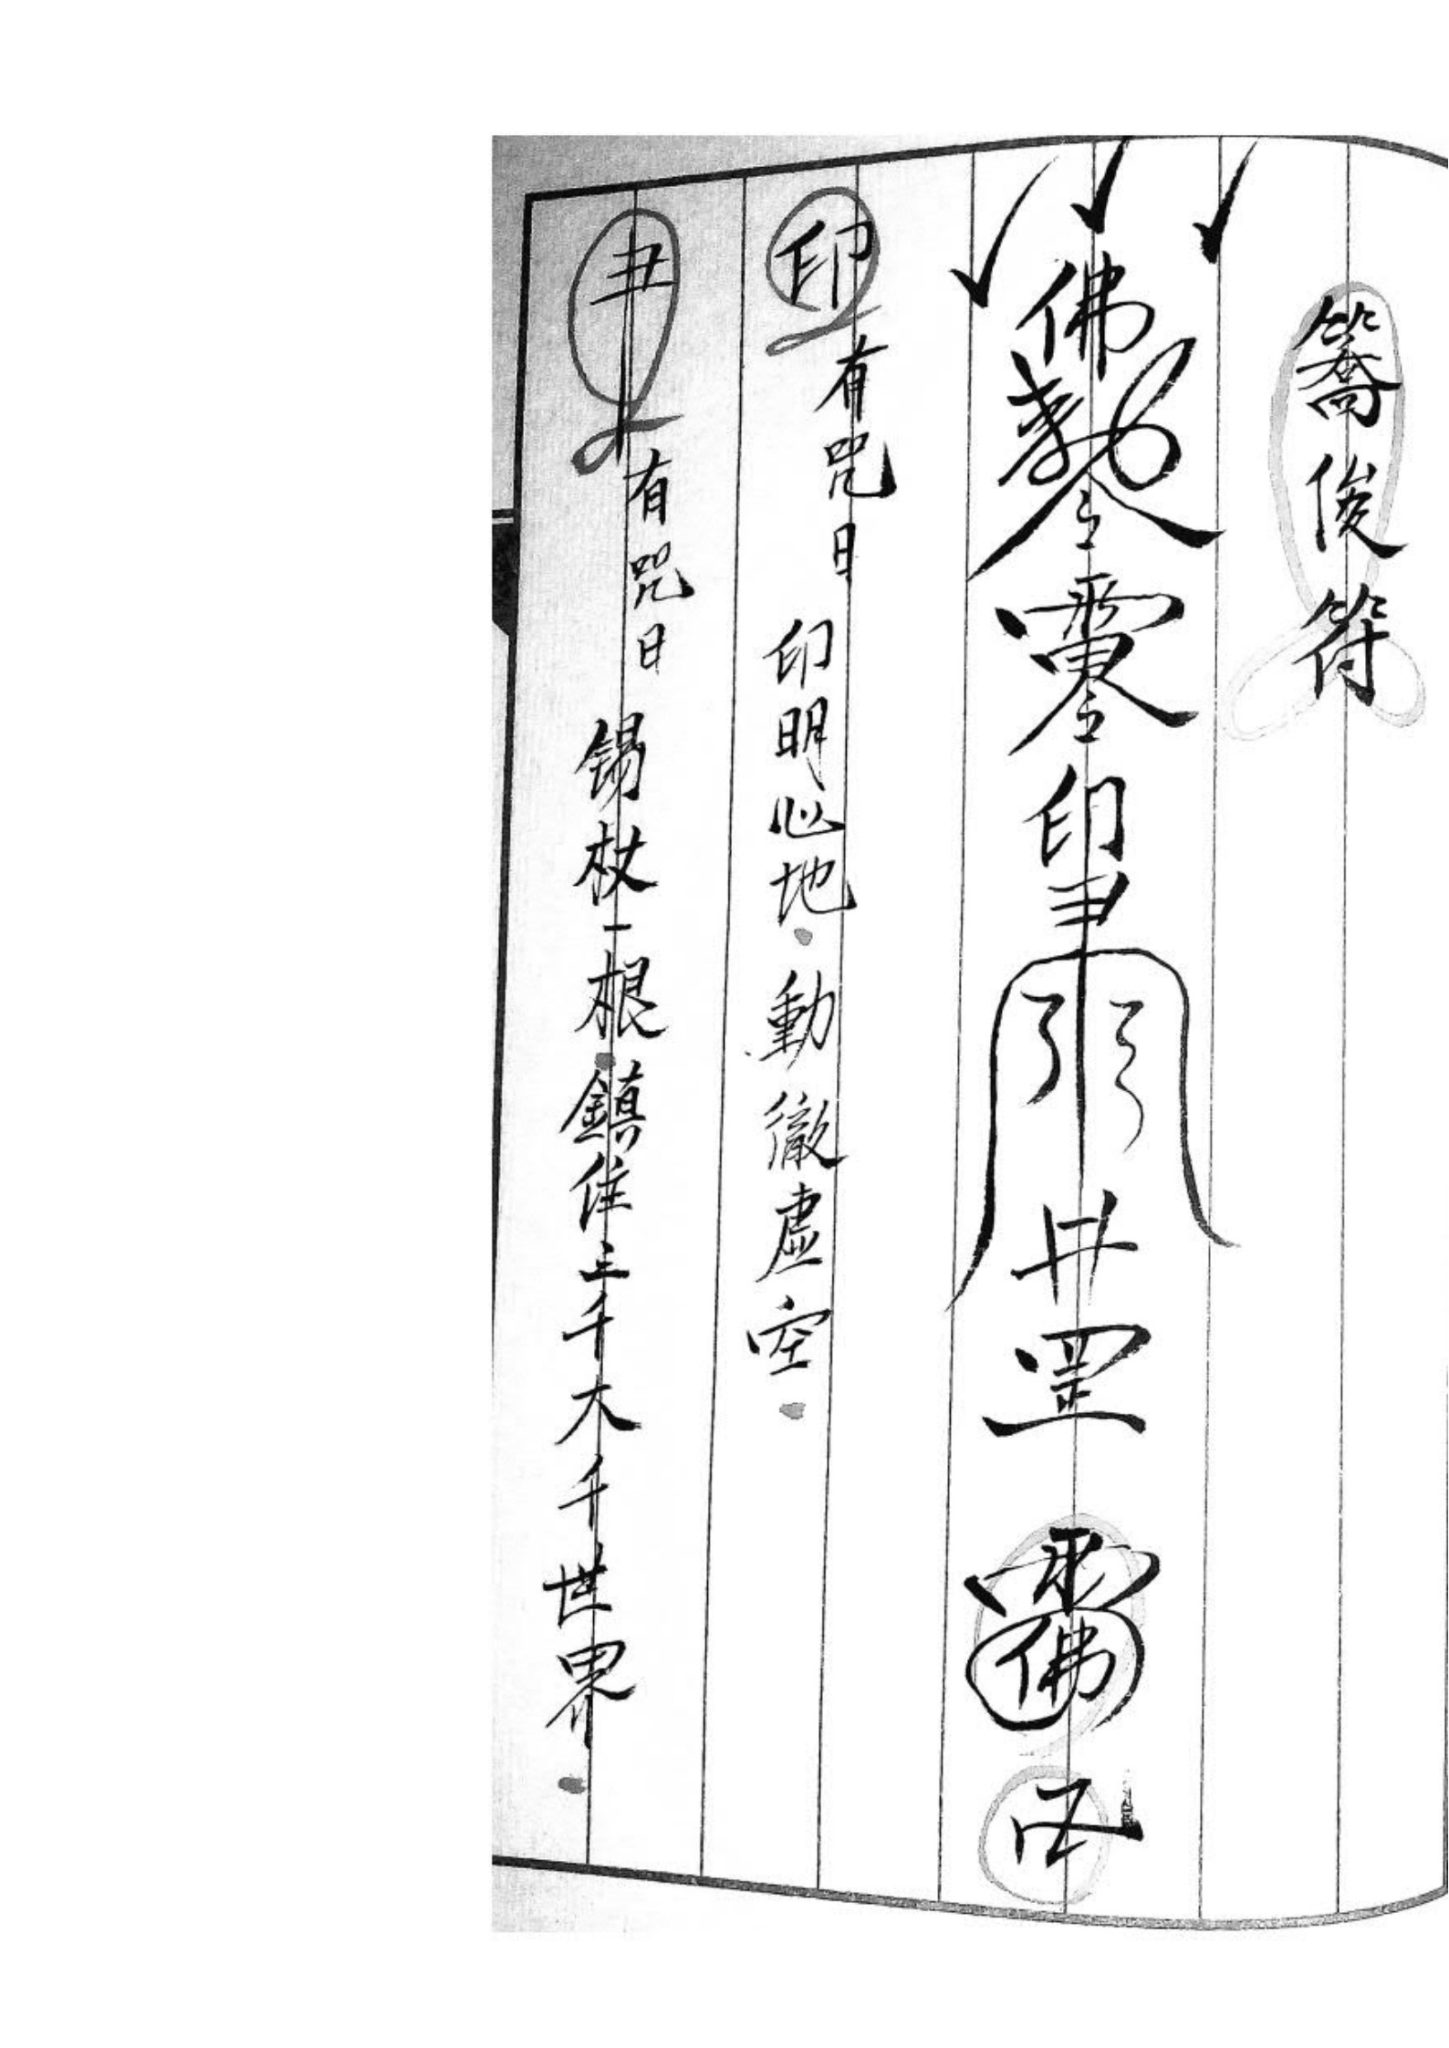 籌俊符
佛勅令靈印
罡
佛
印有咒曰 印明心地。動徹虛空。
有咒曰 錫杖一根。鎮住三千大千世界。